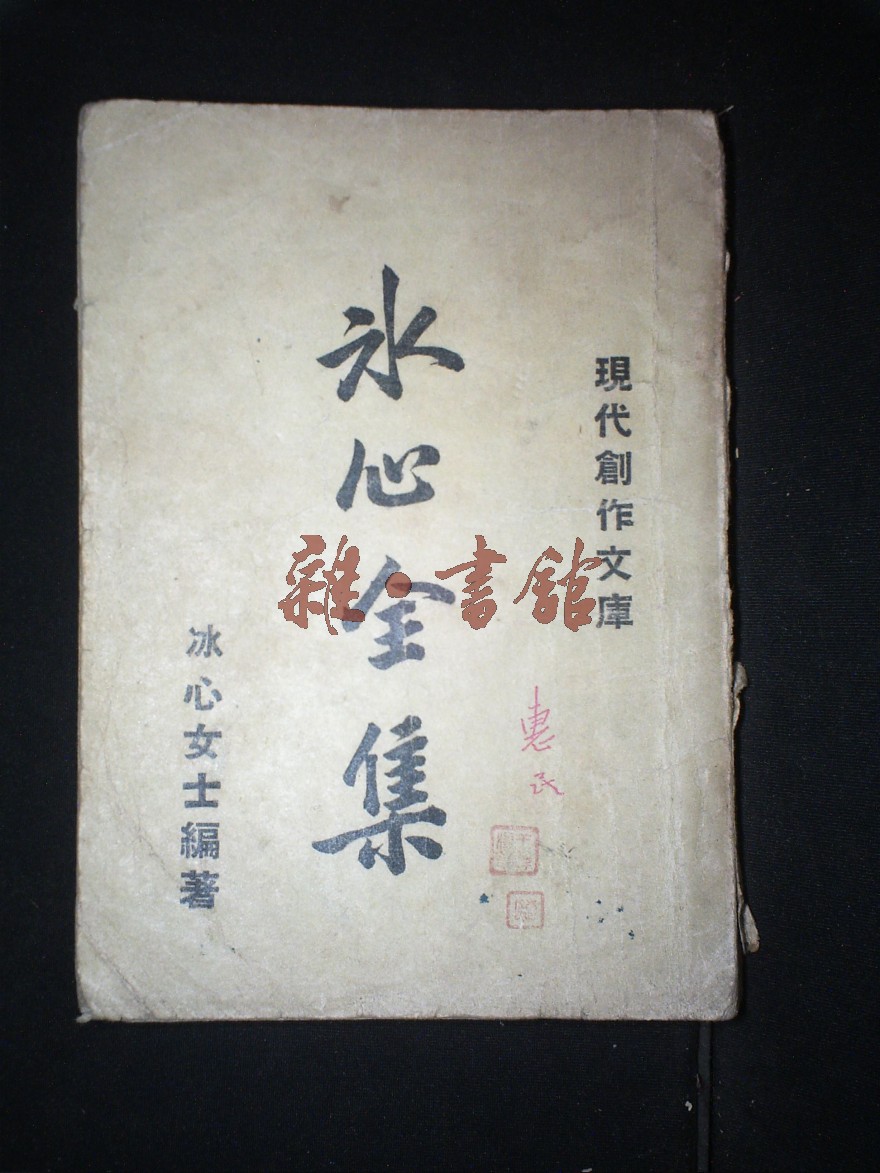 現代創作文庫
氷心全集
冰心女士編著
惠民
雜·書館